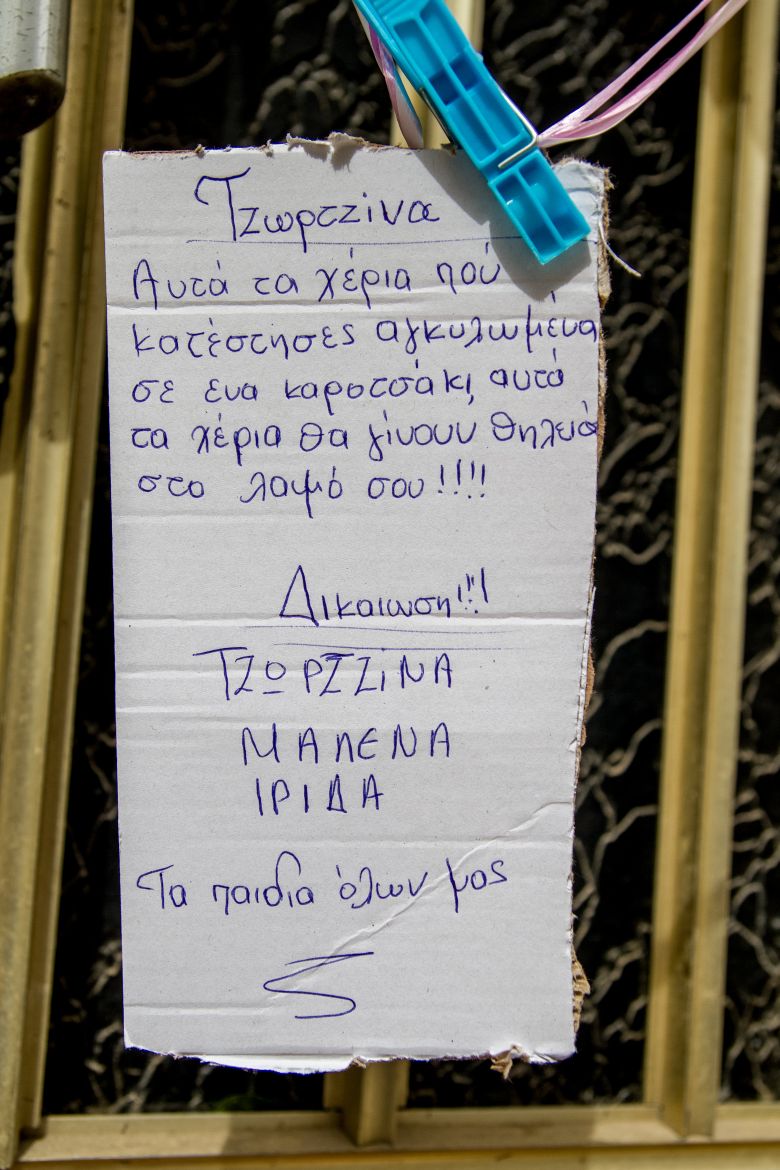 Τζωρτζίνα
Αυτά τα χέρια πού
κατέστησες αγκυλωμένα
σε ενα καροτσάκι, αυτά
τα χέρια θα γίνουν θηλειά
στο λαιμό σου!!!!
Δικαίωση!!!
ΤΖΩΡΤΖΙΝΑ
ΜΑΛΕΝΑ
ΙΡΙΔΑ
Τα παιδια όλων μας